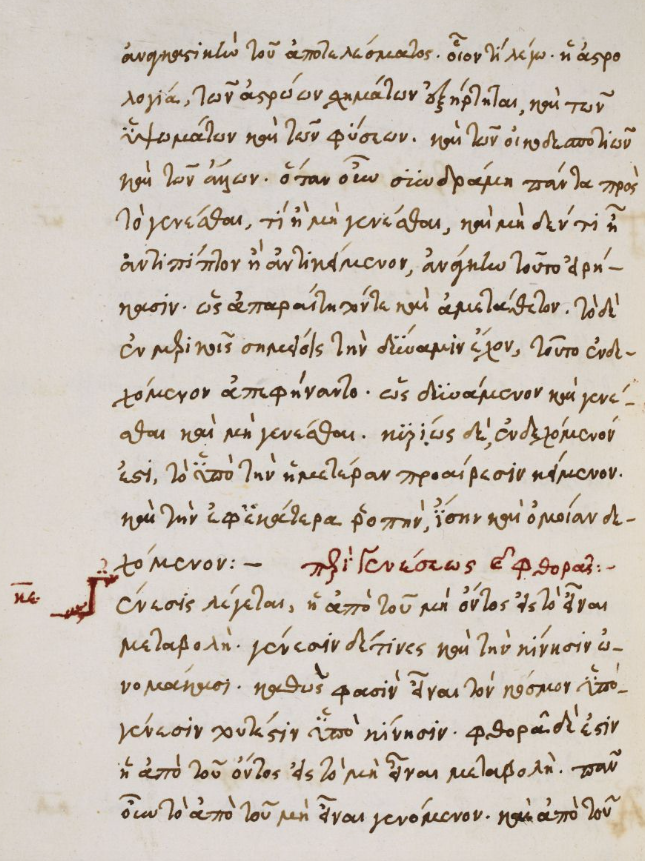 τοῦ ἀποτελέσματος. οἷον τί λέγω. ἡ ἀστρο
λογία, τῶν ἀστρώων σχημάτων ἐξήρτηται, καὶ τῶν
ὑψωμάτων καὶ τῶν φύσεων. καὶ τῶν οἰκοδεσποτιῶν
καὶ τῶν ἄλλων. ὅταν οὖν συνδράμη πάντα πρὸς
τὸ γενέσθαι, τί ἢ μὴ γενέσθαι, καὶ μὴ δέν τι ἦ
ἀντιπίπτον ἢ ἀντικείμενον, τοῦτο εἰρή-
κασιν. ὡς ἀπαραίτητόν τε καὶ ἀμετάθετον. τὸ δὲ
ἐν μερικοῖς σημείοις τὴν δύναμιν ἔχον, τοῦτο ἐνδε-
χόμενον ἀπεφήναντο. ὡς δυνάμενον καὶ γενέ-
σθαι καὶ μὴ γενέσθαι. κυρίως δὲ, ἐνδεχόμενόν
ἐστι, τὸ ὑπὸ τὴν ἡμετέραν προαίρεσιν κείμενον.
καὶ τὴν ἐφ' ἑκάτερα ῥοπὴν, ἴσην καὶ ὁμοίαν δε-
χόμενον: — περὶ γενέσεως καὶ φθορᾶς:-
κε Γένεσις λέγεται, ἡ ἀπὸ τοῦ μὴ ὄντος εἰς τὸ εἶναι
μεταβολή. γένεσιν δέ τινες καὶ τὴν κίνησιν ὠ-
νομάκασι. καθὼς φασὶν εἶναι τὸν κόσμον ὑπὸ
γένεσιν τουτέστιν ὑπὸ κίνησιν. φθορὰ δὲ ἐστὶν
ἡ ἀπὸ τοῦ ὄντος εἰς τὸ μὴ εἶναι μεταβολή. πᾶν
οὖν τὸ ἀπὸ τοῦ μὴ εἶναι γενόμενον. καὶ ἀπὸ τοῦ